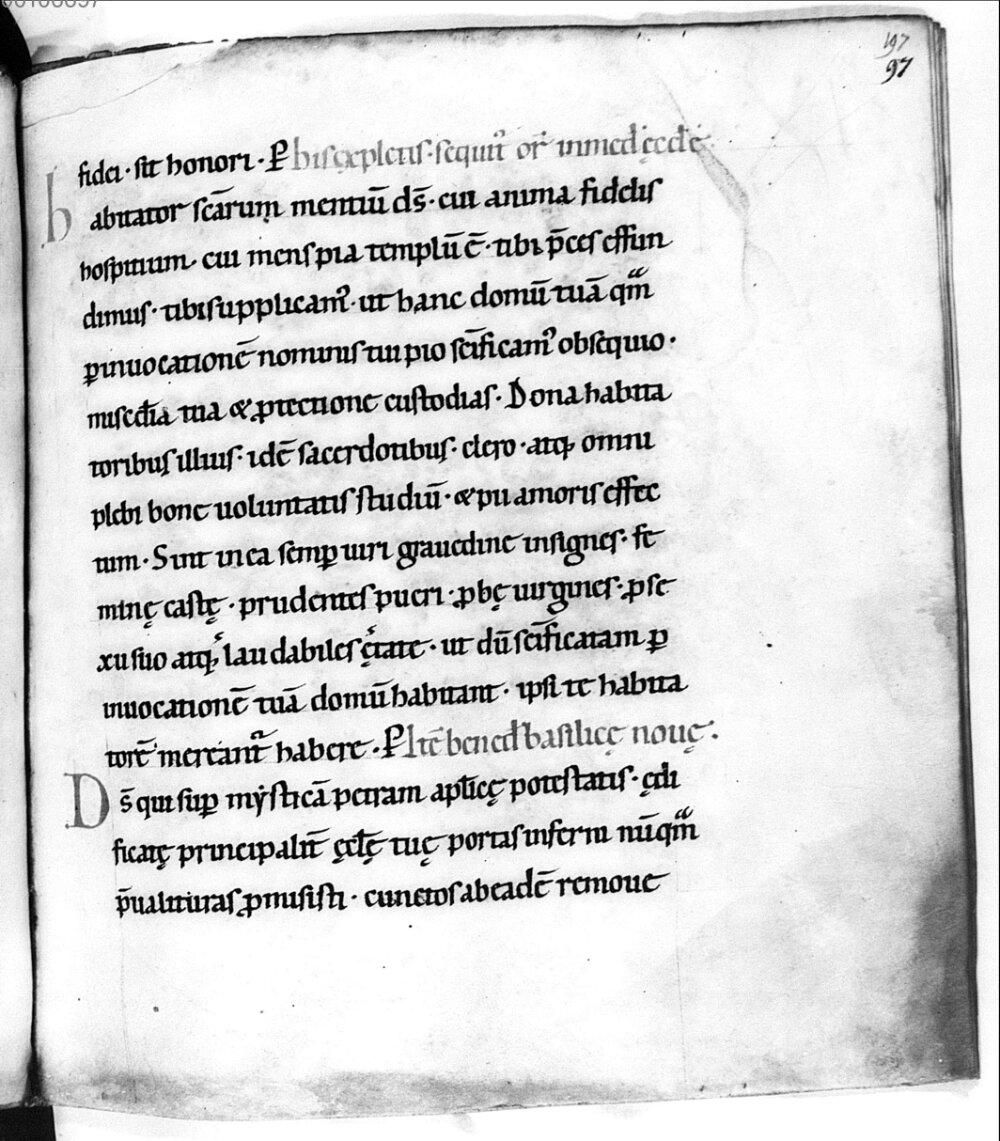 197
97
fidei · sit honori · P̲ his ęxpletis · sequit᷑ or̄ in med̄ ęccl̄ę
habitator sc̄arum mentiū ds̄ · cui anima fidelis
hospitium · cui mens pia templū ē · tibi p̄ces effun
dimus · tibi supplicam᷒ · ut hanc domū tuā qm̄
ꝑ inuocationē nominis tui pio sc̄ificam᷒ obsequio ·
misedīa tua & ꝓtectione custodias · Dona habita
toribus illius · idē sacerdotibus · clero · atq; omni
plebi bone uoluntatis studiū · & pii amoris effec
tum · Sint in ea semꝑ uiri grauedine insignes · fe
minę castę · prudentes pueri · ꝓbę uirgines · ꝓ se
xu suo atq; laudabiles ętate · ut dū sc̄ificatam ꝑ
inuocationē tuā domū habitant · ipsi te habita
torē mereant᷑ habere · P̲ Itē bened̄ basilicę nouę :
Ds̄ qui suꝑ mẏsticā petram apl̄icę potestatis · ędi
ficatę principalit̄ ęcl̄ę tuę portas inferni nūqm̄
p̄ualituras ꝓmisisti · cunctos ab eadē remoue